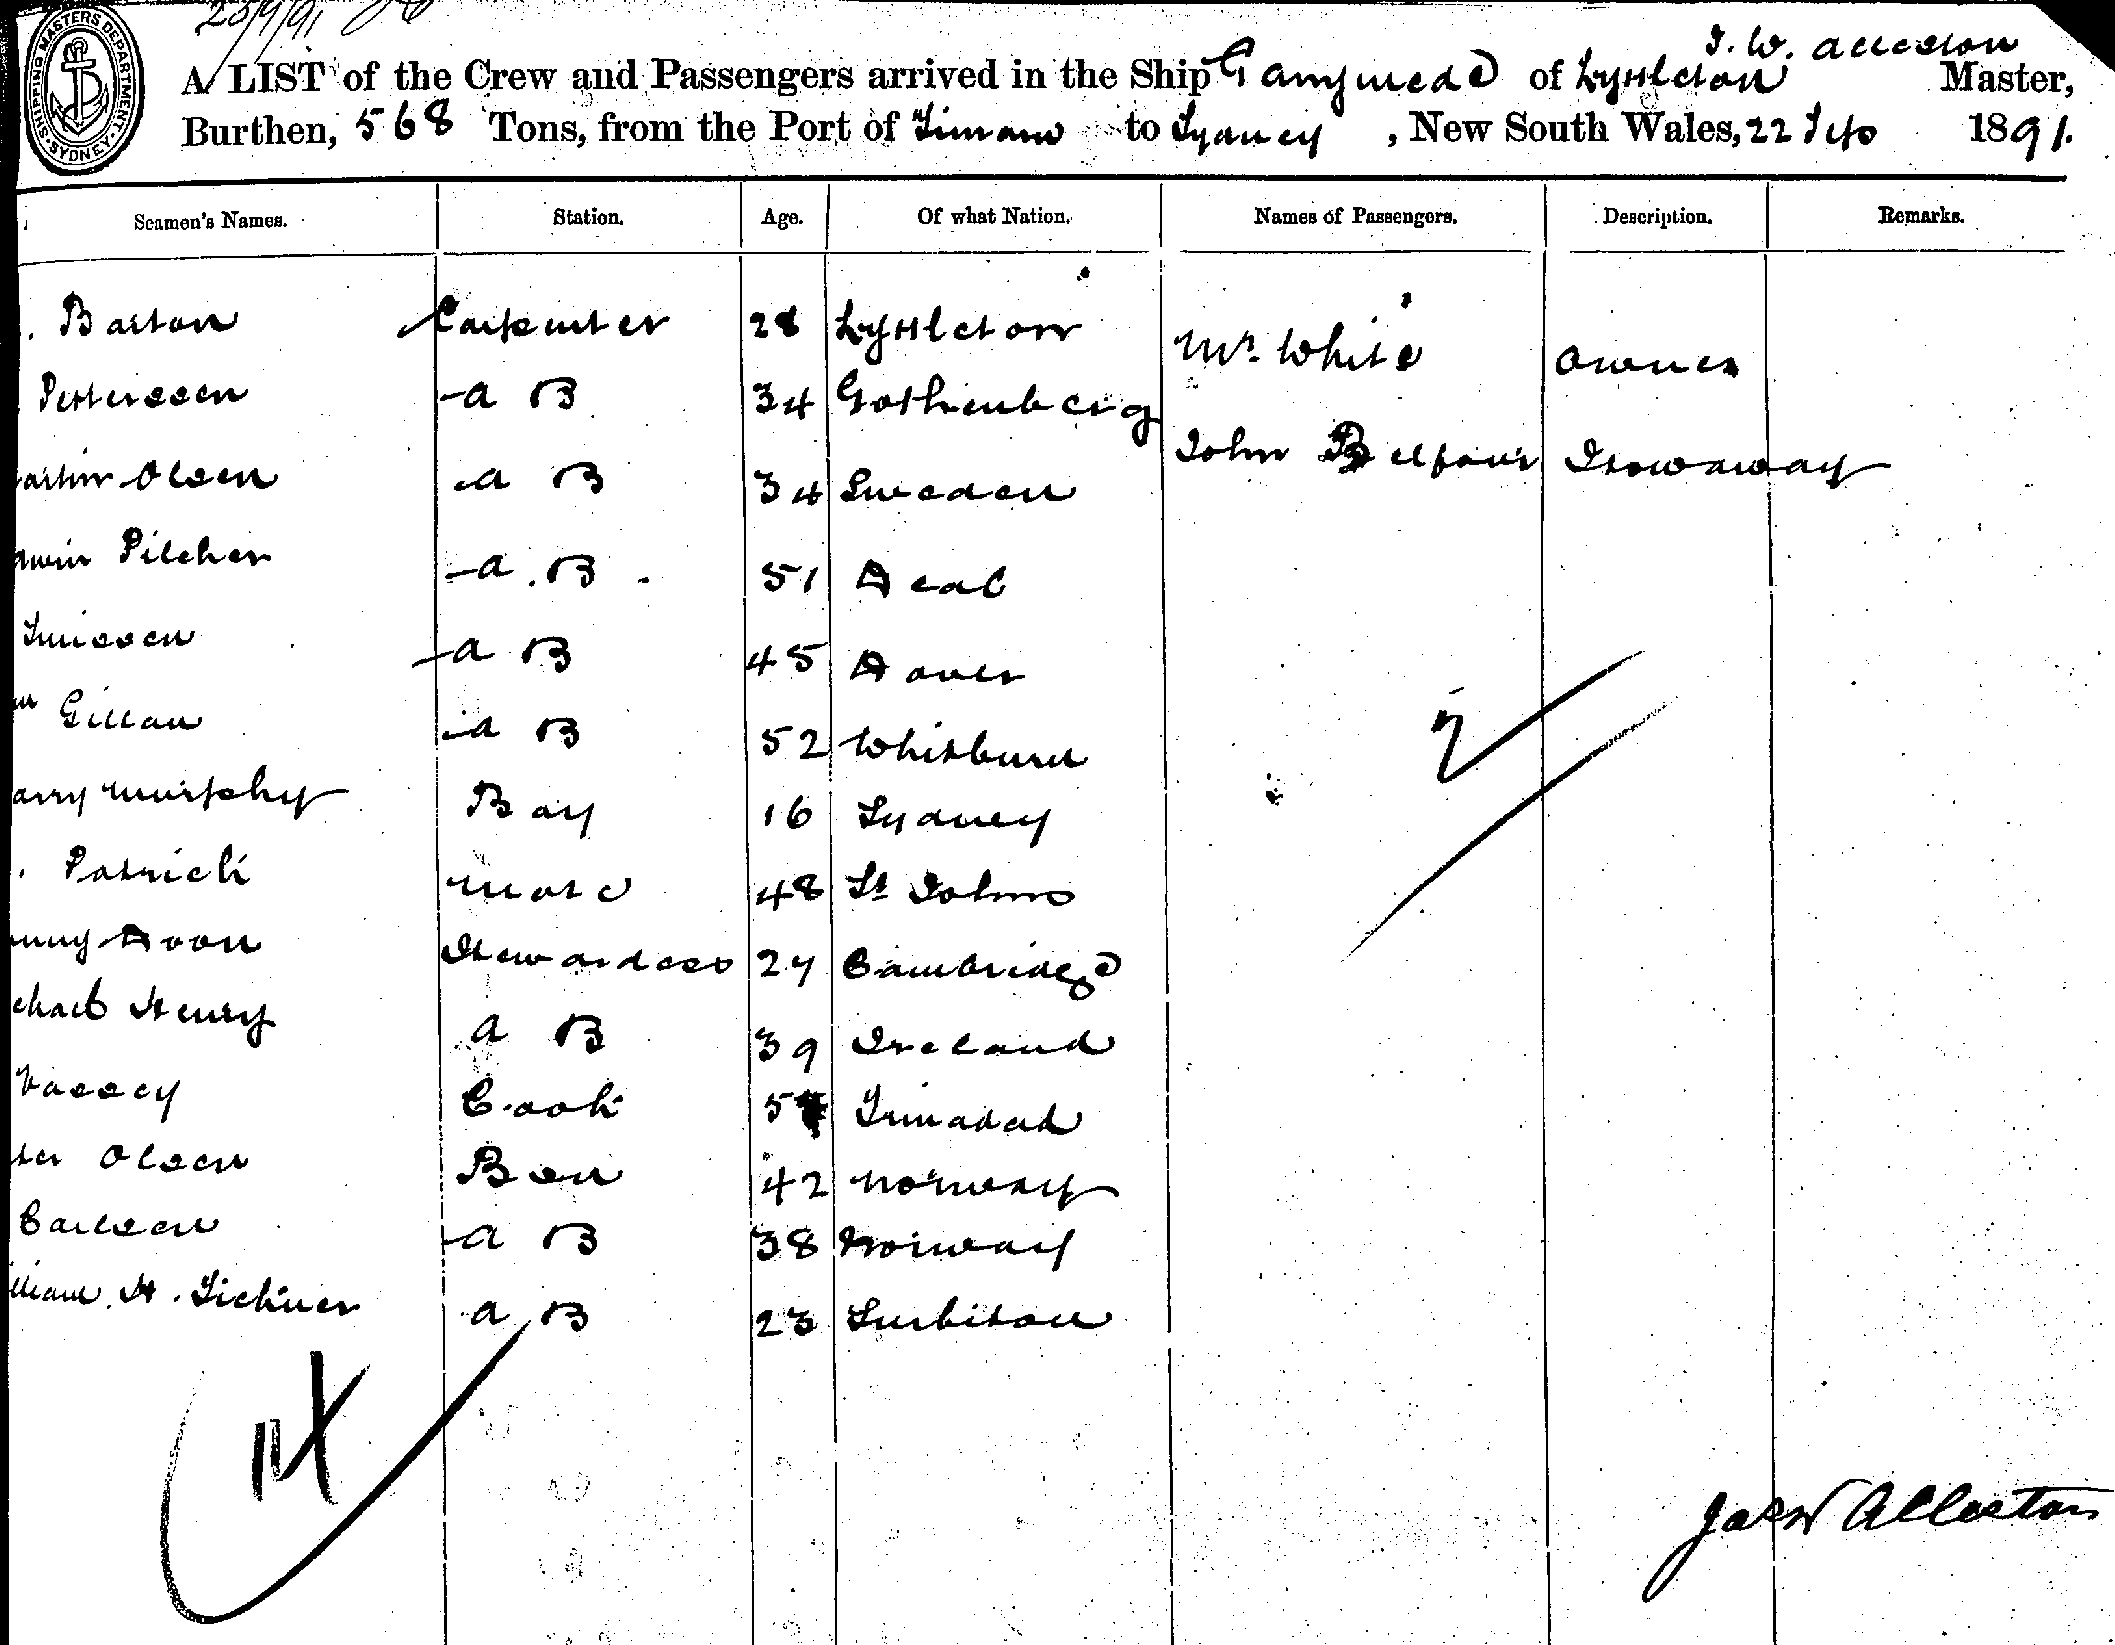 25/9/91
SHIPPING MASTERS DEPARTMENT SYDNEY
J. W. Alleston
A LIST of the Crew and Passengers arrived in the Ship Ganymede of Lyttleton Master,
Burthen, 568 Tons, from the Port of Timaru to Sydney, New South Wales, 22 Sep 1891.
Seamen's Names. Station. Age. Of what Nation. Names of Passengers. Description. Remarks.
Barton Carpenter 28 Lyttleton Mr. White Owner
Petterssen A B 34 Gothenberg
artin Olsen A B 34 Sweden John Belfour Stowaway
dwin Pilcher A.B. 51 Deal
A B 45 Dover
Gillan A B 52 Whitburn
arry Murphy Boy 16 Sydney
Patrick Mate 48 St Johns
Doon Stewardess 27 Cambridge
chael Henry A B 39 Ireland
Vassey Cook Trinadad
ter Olsen Bsn 42 Norway
Carlsen A B 38 Norway
illiam H. Tickner A B 23 Surbiton
2
14
Jas W Alleston